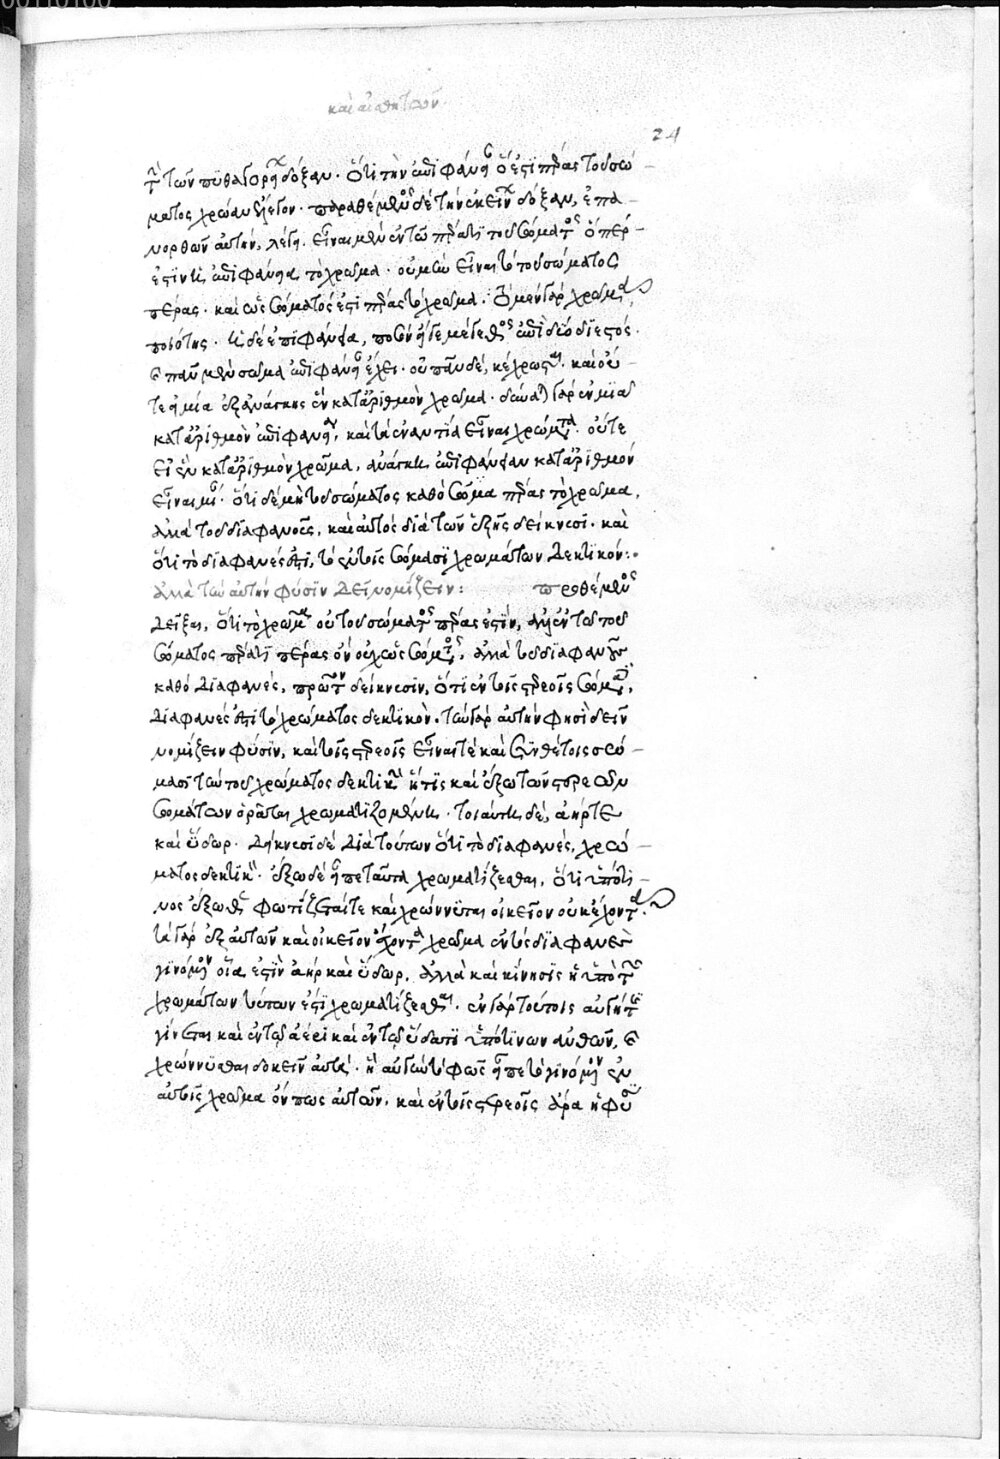 καὶ αἰσθητῶν
24
τ̀ τῶν πυθαγορ̑ δόξαν. ὅτι τὴν ἐπιφάν ὅ ἐστι πέρας τοῦ σώ-
ματος χρόαν ἔλεγον. παραθέμενος δὲ τὴν ἐκείν δόξαν, ἐπα-
νορθῶν αὐτὴν, λέγει. εἶναι μὲν ἐν τῶ πέρατι τοῦ σώματος ὅπερ
ἐστὶν ἡ ἐπιφάνεια τὸ χρῶμα. οὐ μὴν εἶναι τὸ τοῦ σώματος
πέρας. καὶ ὡς σώματος ἐστὶ πέρας τὸ χρῶμα. ὁ μὲν γὰρ χρῶμα
ποιότης. ἡ δὲ ἐπιφάνεια, ποσὸν ἤδε μέγεθος ἐπὶ δύο διεστός.
καὶ πᾶν μὲν σῶμα ἐπιφάν ἔχει. οὐ πᾶν δὲ, κέχρωσται. καὶ οὔ-
τε ἡ μία ἐξανάγκης ἓν κατ' ἀριθμὸν χρῶμα. γὰρ ἐν μιᾶ
κατ' ἀριθμὸν ἐπιφαν, καὶ τὰ ἐναντία εἶναι χρώματα. οὔτε
εἰ ἓν κατ' ἀριθμὸν χρῶμα, ἀνάγκη ἐπιφάνειαν κατ' ἀριθμὸν
εἶναι μί. ὅτι δὲ μὴ τοῦ σώματος καθὸ σῶμα πέρας τὸ χρῶμα,
ἀλλὰ τοῦ διαφανοῦς, καὶ αὐτὸς διὰ τῶν ἑξῆς δείκνυσι. καὶ
ὅτι τὸ διαφανές ἐστι, τὸ ἐν τοῖς σώμασι χρωμάτων δεκτικόν:.
ἀλλὰ τὴν αὐτὴν φύσιν δεῖ νομίζειν: προθέμενος
δεῖξαι, ὅτι τὸ χρῶμα οὐ τοῦ σώματος πέρας ἐστὶν, ἀλλ' ἐν τῶ τοῦ
σώματος πέρατι πέρας ὂν οὐχ ὡς σώματος, ἀλλὰ τοῦ διαφανοῦς
καθὸ διαφανές, πρῶτον δείκνυσιν, ὅτι ἐν τοῖς στερεοῖς σώμασι,
διαφανές ἐστι τὸ χρώματος δεκτικὸν. τὴν γὰρ αὐτὴν φησὶ δεῖν
νομίζειν φύσιν, καὶ τοῖς στερεοῖς εἶναί τε καὶ συνθέτοις σώ-
μασι τὴν τοῦ χρώματος δεκτικὴν ἥτις καὶ ἔξω τῶν στερεῶν
σωμάτων ὁρᾶται χρωματιζομένη. τοιαύτη δὲ, ἀήρ τε
καὶ ὕδωρ. δείκνυσι δὲ διὰ τούτων ὅτι τὸ διαφανές, χρώ-
ματος δεκτικὸν. ἔξωθεν εἶπε ταῦτα χρωματίζεσθαι, ὅτι ὑπό τι-
νος ἔξωθεν φωτίζεταί τε καὶ χρώννυται οἰκεῖον οὐκ ἔχοντα.
τὰ γὰρ ἐξ αὐτῶν καὶ οἰκεῖον ἔχοντα χρῶμα ἐν τῶ διαφανεῖ
γινόμενον οἷα ἐστὶν ἀὴρ καὶ ὕδωρ, ἀλλὰ καὶ κίνησις ἡ ὑπὸ τῶν
χρωμάτων τούτων ἐστὶ χρωματίζεσθαι. ἐν γὰρ τούτοις αὐγή
γίνεται καὶ ἐν τῶ ἀέρι καὶ ἐν τῶ ὕδατι ὑπό τινων αὐθων, καὶ
χρώννυσθαι δοκεῖν αὐτά. ἢ αὐγὴν τὸ φῶς εἶπε τὸ γινόμενον ἐν
αὐτοῖς χρῶμα ὄν πως αὐτῶν. καὶ ἐν τοῖς στερεοῖς ἄρα ἡ φύσις